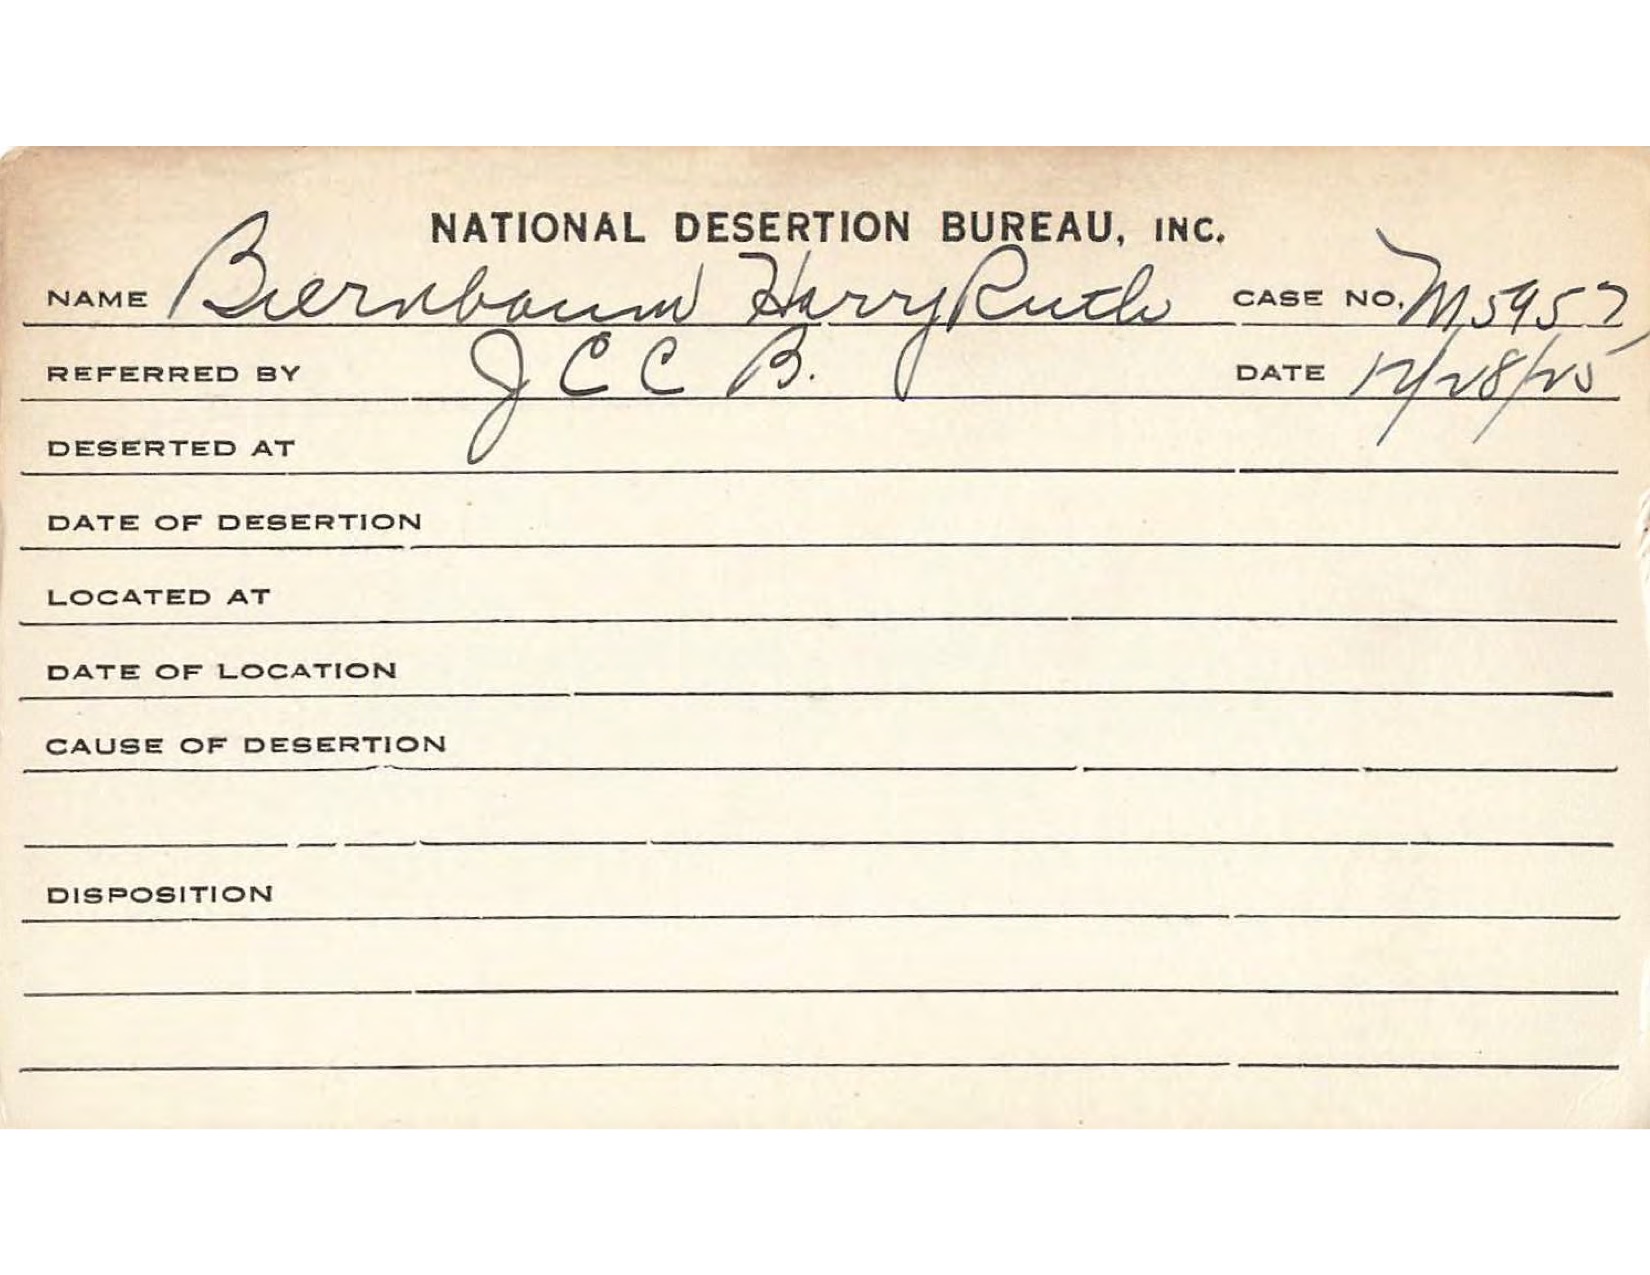 NATIONAL DESERTION BUREAU, INC.
NAME Biernbaum Harry Ruth CASE NO. M5957
REFERRED BY J C C B. DATE 12/28/25
DESERTED AT
DATE OF DESERTION
LOCATED AT
DATE OF LOCATION
CAUSE OF DESERTION
DISPOSITION